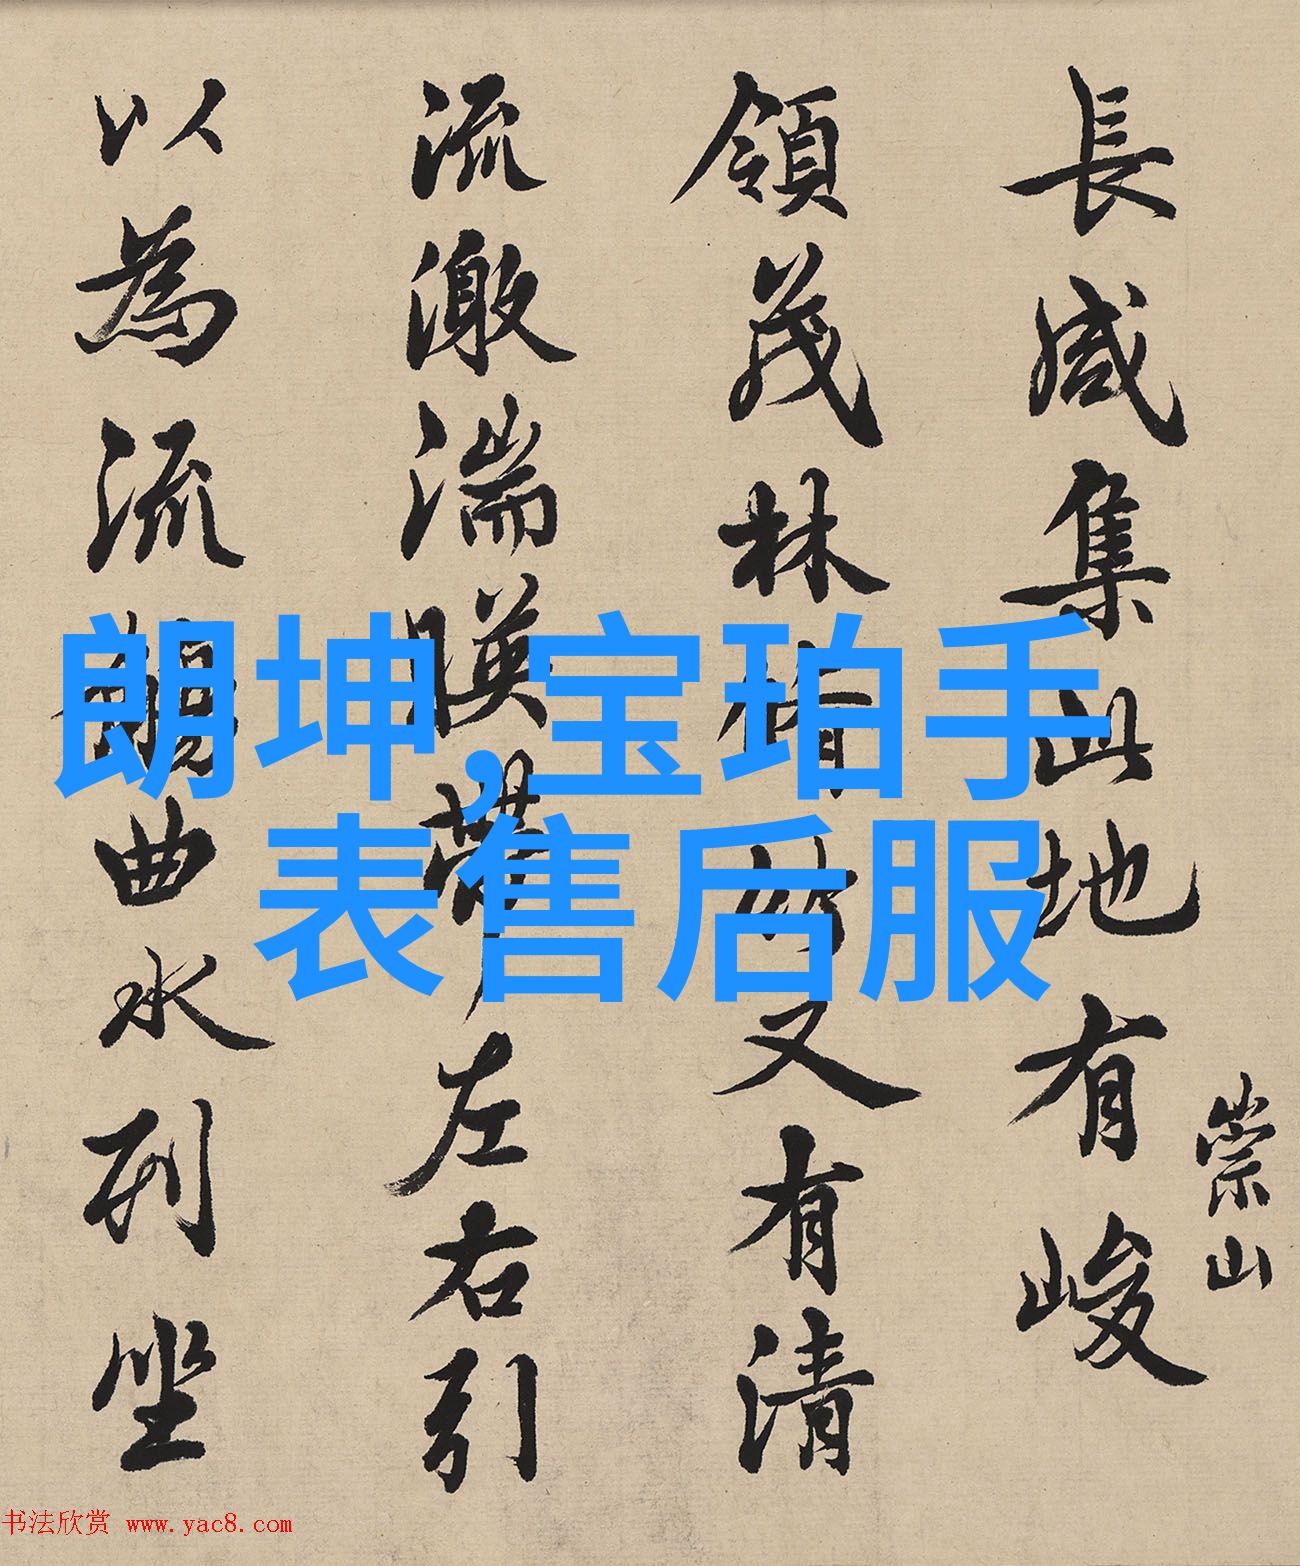 崇山
長咸集此地有峻
領茂林脩竹又有清
流激湍暎帶左右引
以為流觴曲水列坐
朗坤,宝珀手
表售后服
书法欣赏 www.yac8.com